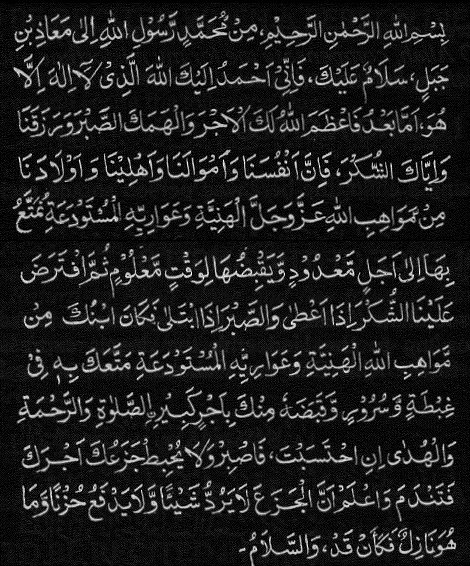 بِسْمِ اللهِ الرَّحْمٰنِ الرَّحِيْمِ، مِنْ مُّحَمَّدٍ رَّسُوْلِ اللهِ اِلٰى مَعَاذِ بْنِ
جَبَلٍ، سَلَامٌ عَلَيْكَ، فَاِنِّىْ اَحْمَدُ اِلَيْكَ اللهَ الَّذِىْ لَآ اِلٰهَ اِلَّا
هُوَ، اَمَّا بَعْدُ فَاَعْظَمَ اللهُ لَكَ الْاَجْرَ وَاَلْهَمَكَ الصَّبْرَ وَرَزَقَنَا
وَاِيَّاكَ الشُّكْرَ، فَاِنَّ اَنْفُسَنَا وَاَمْوَالَنَا وَاَهْلِيْنَا وَاَوْلَادَنَا
مِنْ مَّوَاهِبِ اللهِ عَزَّ وَجَلَّ الْهَنِيَّةِ وَعَوَارِيِّهِ الْمُسْتَوْدَعَةِ نُمَتَّعُ
بِهَا اِلٰى اَجَلٍ مَّعْدُوْدٍ وَّيَقْبِضُهَا لِوَقْتٍ مَّعْلُوْمٍ ثُمَّ افْتَرَضَ
عَلَيْنَا الشُّكْرَ اِذَا اَعْطٰى وَالصَّبْرَ اِذَا ابْتَلٰى فَكَانَ ابْنُكَ مِنْ
مَّوَاهِبِ اللهِ الْهَنِيَّةِ وَعَوَارِيِّهِ الْمُسْتَوْدَعَةِ مَتَّعَكَ بِهٖ فِىْ
غِبْطَةٍ وَّسُرُوْرٍ وَّقَبَضَهٗ مِنْكَ بِاَجْرٍ كَبِيْرٍ اِلصَّلٰوةِ وَالرَّحْمَةِ
وَالْهُدٰى اِنِ احْتَسَبْتَ، فَاصْبِرْ وَلَا يُحْبِطْ جَزَعُكَ اَجْرَكَ
فَتَنْدَمَ وَاعْلَمْ اَنَّ الْجَزَعَ لَا يَرُدُّ شَيْئًا وَّلَا يَدْفَعُ حُزْنًا وَّمَا
هُوَ نَازِلٌ فَكَاَنْ قَدْ، وَالسَّلَامُ۔